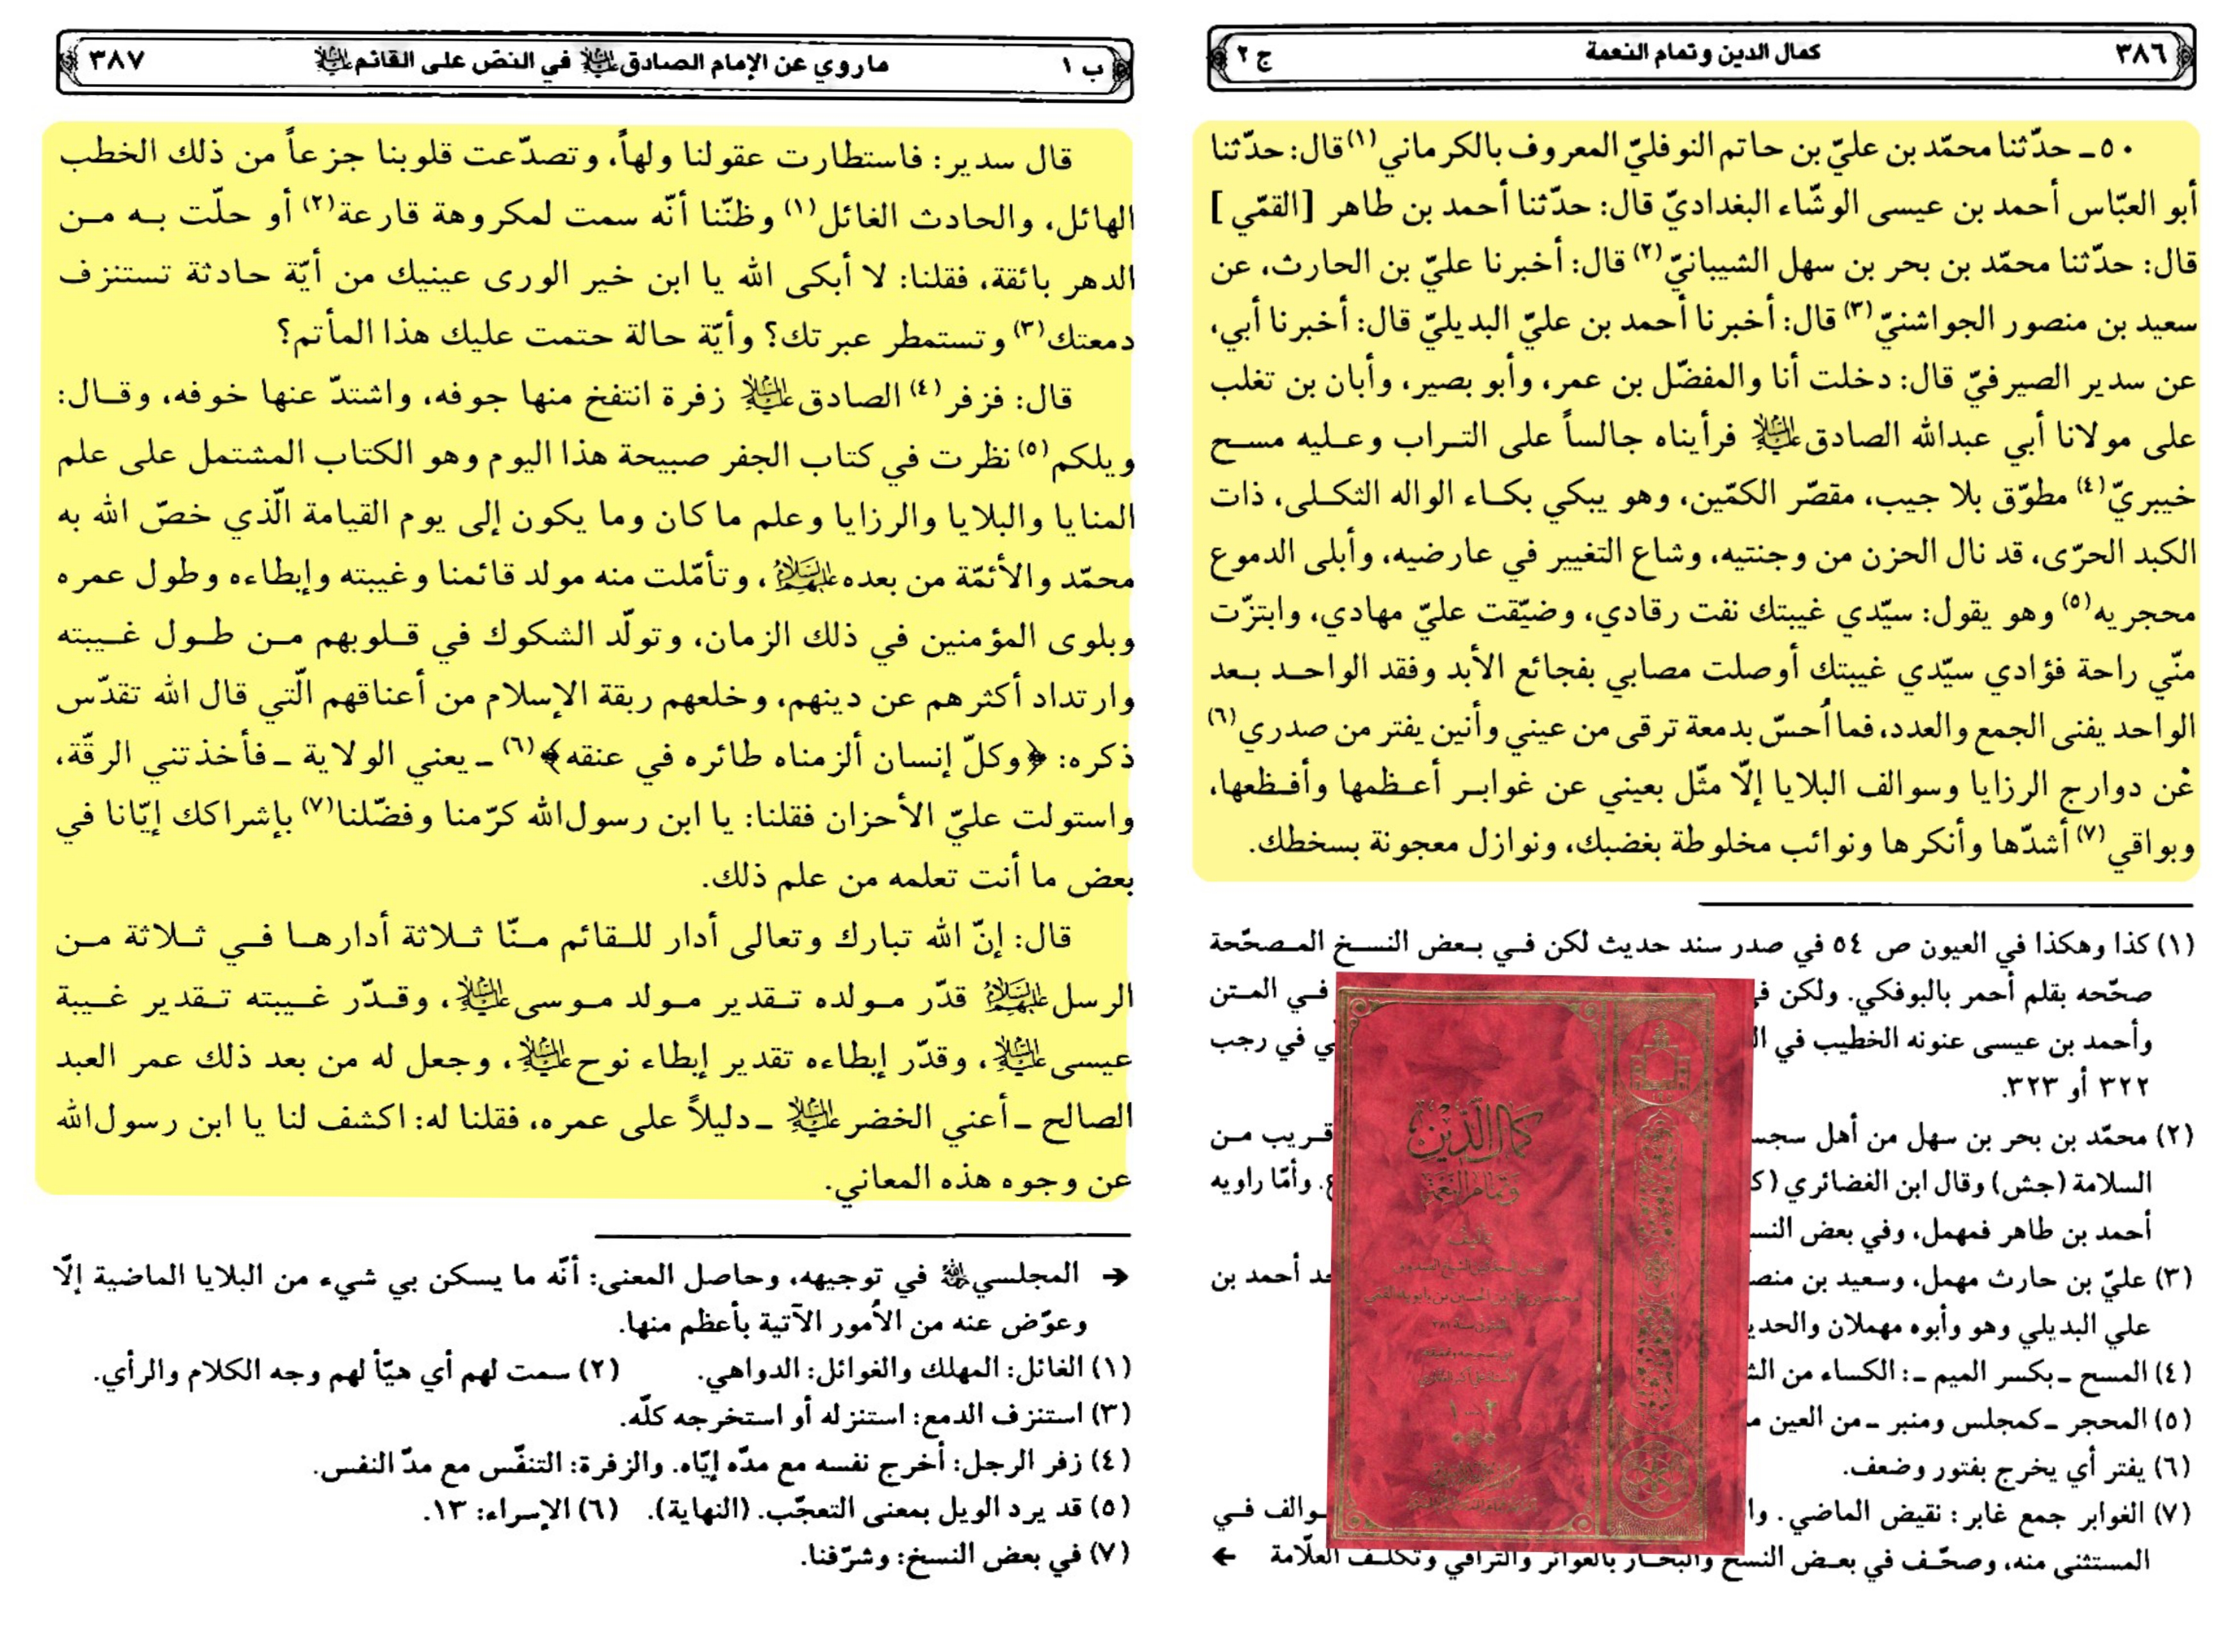 ٣٨٦ كمال الدين وتمام النعمة ج ٢
٥٠ـ حدّثنا محمّد بن عليّ بن حاتم النوفليّ المعروف بالكرماني(١) قال: حدّثنا
أبو العبّاس أحمد بن عيسى الوشّاء البغداديّ قال: حدّثنا أحمد بن طاهر [القمّي]
قال: حدّثنا محمّد بن بحر بن سهل الشيبانيّ(٢) قال: أخبرنا عليّ بن الحارث، عن
سعيد بن منصور الجواشنيّ(٣) قال: أخبرنا أحمد بن عليّ البديليّ قال: أخبرنا أبي،
عن سدير الصيرفيّ قال: دخلت أنا والمفضّل بن عمر، وأبو بصير، وأبان بن تغلب
على مولانا أبي عبدالله الصادق عليه السلام فرأيناه جالساً على التراب وعليه مسح
خيبريّ(٤) مطوّق بلا جيب، مقصّر الكمّين، وهو يبكي بكاء الواله الثكلى، ذات
الكبد الحرّى، قد نال الحزن من وجنتيه، وشاع التغيير في عارضيه، وأبلى الدموع
محجريه(٥) وهو يقول: سيّدي غيبتك نفت رقادي، وضيّقت عليّ مهادي، وابتزّت
منّي راحة فؤادي سيّدي غيبتك أوصلت مصابي بفجائع الأبد وفقد الواحد بعد
الواحد يفنى الجمع والعدد، فما أُحسّ بدمعة ترقى من عيني وأنين يفتر من صدري(٦)
عن دوارج الرزايا وسوالف البلايا إلّا مثّل بعيني عن غوابر أعظمها وأفظعها،
وبواقي(٧) أشدّها وأنكرها ونوائب مخلوطة بغضبك، ونوازل معجونة بسخطك.
(١) كذا وهكذا في العيون ص ٥٤ في صدر سند حديث لكن في بعض النسخ المصحّحة
صحّحه بقلم أحمر بالبوفكي. ولكن في المتن
وأحمد بن عيسى عنونه الخطيب في في رجب
٣٢٢ أو ٣٢٣.
(٢) محمّد بن بحر بن سهل من أهل قريب من
السلامة (جش) وقال ابن الغضائري وأمّا راويه
أحمد بن طاهر فمهمل، وفي بعض
(٣) عليّ بن حارث مهمل، وسعيد بن أحمد بن
علي البديلي وهو وأبوه مهملان
(٤) المسح ـ بكسر الميم ـ: الكساء من
(٥) المحجر ـ كمجلس ومنبر ـ من العين
(٦) يفتر أي يخرج بفتور وضعف.
(٧) الغوابر جمع غابر: نقيض الماضي. في
المستثنى منه، وصحّف في بعض النسخ والبحار بالعوائر والتراقي وتكلّف العلّامة ←
كمال الدين
وتمام النعمة
تأليف
١ـ٢
٣٨٧ ماروي عن الإمام الصادق عليه السلام في النصّ على القائم عليه السلام ب ١
قال سدير: فاستطارت عقولنا ولهاً، وتصدّعت قلوبنا جزعاً من ذلك الخطب
الهائل، والحادث الغائل(١) وظنّنا أنّه سمت لمكروهة قارعة(٢) أو حلّت به من
الدهر بائقة، فقلنا: لا أبكى الله يا ابن خير الورى عينيك من أيّة حادثة تستنزف
دمعتك(٣) وتستمطر عبرتك؟ وأيّة حالة حتمت عليك هذا المأتم؟
قال: فزفر(٤) الصادق عليه السلام زفرة انتفخ منها جوفه، واشتدّ عنها خوفه، وقال:
ويلكم(٥) نظرت في كتاب الجفر صبيحة هذا اليوم وهو الكتاب المشتمل على علم
المنايا والبلايا والرزايا وعلم ماكان وما يكون إلى يوم القيامة الّذي خصّ الله به
محمّد والأئمّة من بعده عليهم السلام، وتأمّلت منه مولد قائمنا وغيبته وإبطاءه وطول عمره
وبلوى المؤمنين في ذلك الزمان، وتولّد الشكوك في قلوبهم من طول غيبته
وارتداد أكثرهم عن دينهم، وخلعهم ربقة الإسلام من أعناقهم الّتي قال الله تقدّس
ذكره: ﴿وكلّ إنسان ألزمناه طائره في عنقه﴾(٦) ـ يعني الولاية ـ فأخذتني الرقّة،
واستولت عليّ الأحزان فقلنا: يا ابن رسول‌الله كرّمنا وفضّلنا(٧) بإشراكك إيّانا في
بعض ما أنت تعلمه من علم ذلك.
قال: إنّ الله تبارك وتعالى أدار للقائم منّا ثلاثة أدارها في ثلاثة من
الرسل عليهم السلام قدّر مولده تقدير مولد موسى عليه السلام، وقدّر غيبته تقدير غيبة
عيسى عليه السلام، وقدّر إبطاءه تقدير إبطاء نوح عليه السلام، وجعل له من بعد ذلك عمر العبد
الصالح ـ أعني الخضر عليه السلام ـ دليلاً على عمره، فقلنا له: اكشف لنا يا ابن رسول‌الله
عن وجوه هذه المعاني.
→ المجلسي رحمه الله في توجيهه، وحاصل المعنى: أنّه ما يسكن بي شيء من البلايا الماضية إلّا
وعوّض عنه من الأُمور الآتية بأعظم منها.
(١) الغائل: المهلك والغوائل: الدواهي. (٢) سمت لهم أي هيّأ لهم وجه الكلام والرأي.
(٣) استنزف الدمع: استنزله أو استخرجه كلّه.
(٤) زفر الرجل: أخرج نفسه مع مدّه إيّاه. والزفرة: التنفّس مع مدّ النفس.
(٥) قد يرد الويل بمعنى التعجّب. (النهاية). (٦) الإسراء: ١٣.
(٧) في بعض النسخ: وشرّفنا.